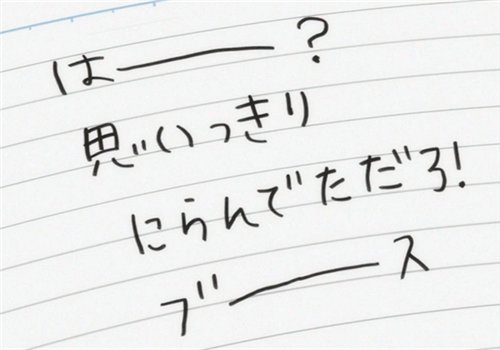 は──?
思いっきり
にらんでただろ!
ブ──ス